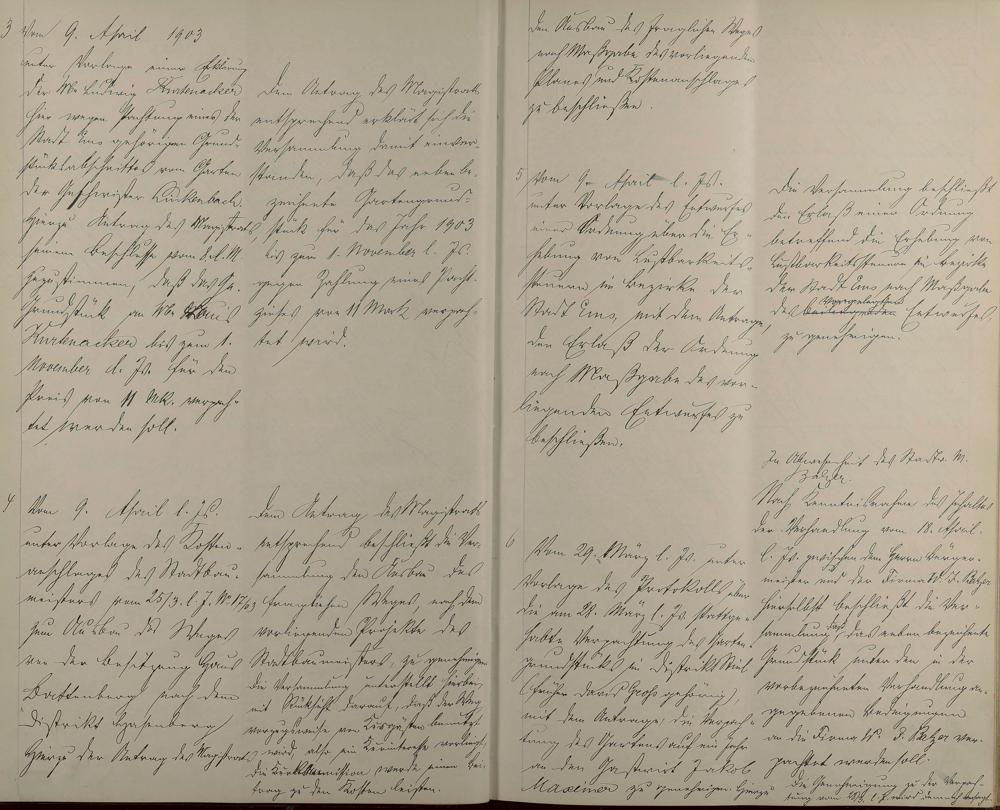 3 Vom 9. April 1903
unter Vorlage einer Erklärung
der Ww. Ludwig Kurtenacker
hier wegen Pachtung eines der
Stadt Ems gehörigen Grund-
stücksabschnittes vom Garten
der Geschwister Kückenbach.
Hierzu Antrag des Magistrats,
seinem Beschlusse vom
zuzustimmen, daß das
Grundstück an Ww.
Kurtenacker bis zum 1.
November d. Js. für den
Preis von 11 Mk. verpach-
tet werden soll.
Dem Antrag des Magistrats
entsprechend erklärt sich die
Versammlung damit einver-
standen, daß das neben be-
zeichnete Gartengrund-
stück für das Jahr 1903
bis zum 1. November l. Js.
gegen Zahlung eines Pacht-
zinses von 11 Mark verpach-
tet wird.
4 Vom 9. April l. Js.
unter Vorlage des Kosten-
anschlages des Stadtbau-
meisters vom 25/3. l. J. No 17/03
zum Ausbau des Weges
von der Besitzung Haus
Battenberg nach dem
Distrikt
Hierzu der Antrag des Magistrats
Dem Antrag des Magistrats
entsprechend beschließt die Ver-
sammlung den Ausbau des
fraglichen Weges, nach dem
vorliegenden Projekte des
Stadtbaumeisters, zu genehmigen
Die Versammlung unterstellt hierbei,
mit Rücksicht darauf, daß der Weg
vorzugsweise von Kurgästen benutzt
wird, also ein Kurinteresse vorliegt,
die Kurkommission werde einen Bei-
trag zu den Kosten leisten.
den Ausbau des fraglichen Weges
nach Maßgabe des vorliegenden
Planes und Kostenanschlages
zu beschließen.
5 Vom 9. April l. Js.
unter Vorlage des Entwurfes
einer Ordnung über die Er-
hebung von Lustbarkeits-
steuern im Bezirke der
Stadt Ems, mit dem Antrage,
den Erlaß der Ordnung
nach Maßgabe des vor-
liegenden Entwurfes zu
beschließen.
Die Versammlung beschließt
den Erlaß einer Ordnung
betreffend die Erhebung von
Lustbarkeitssteuern im Bezirke
der Stadt Ems nach Maßgabe
des vorgelegten Entwurfes
zu genehmigen.
6 Vom 29. März l. Js. unter
Vorlage des Protokolls über
die am 28. März l. Js. stattge-
habte Verpachtung des Garten-
grundstücks im Distrikt
(früher David Groß gehörig)
mit dem Antrage, die Verpach-
tung des Gartens auf ein Jahr
an den Gastwirt Jakob
Maxeiner zu genehmigen. Hierzu
In Abwesenheit des Stadtv. M.
Balzer.
Nach Kenntnisnahme des Inhaltes
der Verhandlung vom 18. April
l. Js. zwischen dem Herrn Bürger-
meister und der Firma W. J. Balzer
hierselbst beschließt die Ver-
sammlung, daß das neben bezeichnete
Grundstück unter den in der
vorbezeichneten Verhandlung an-
gegebenen Bedingungen
an die Firma W. J. Balzer ver-
pachtet werden soll.
Die Genehmigung zu der Verpach-
tung vom